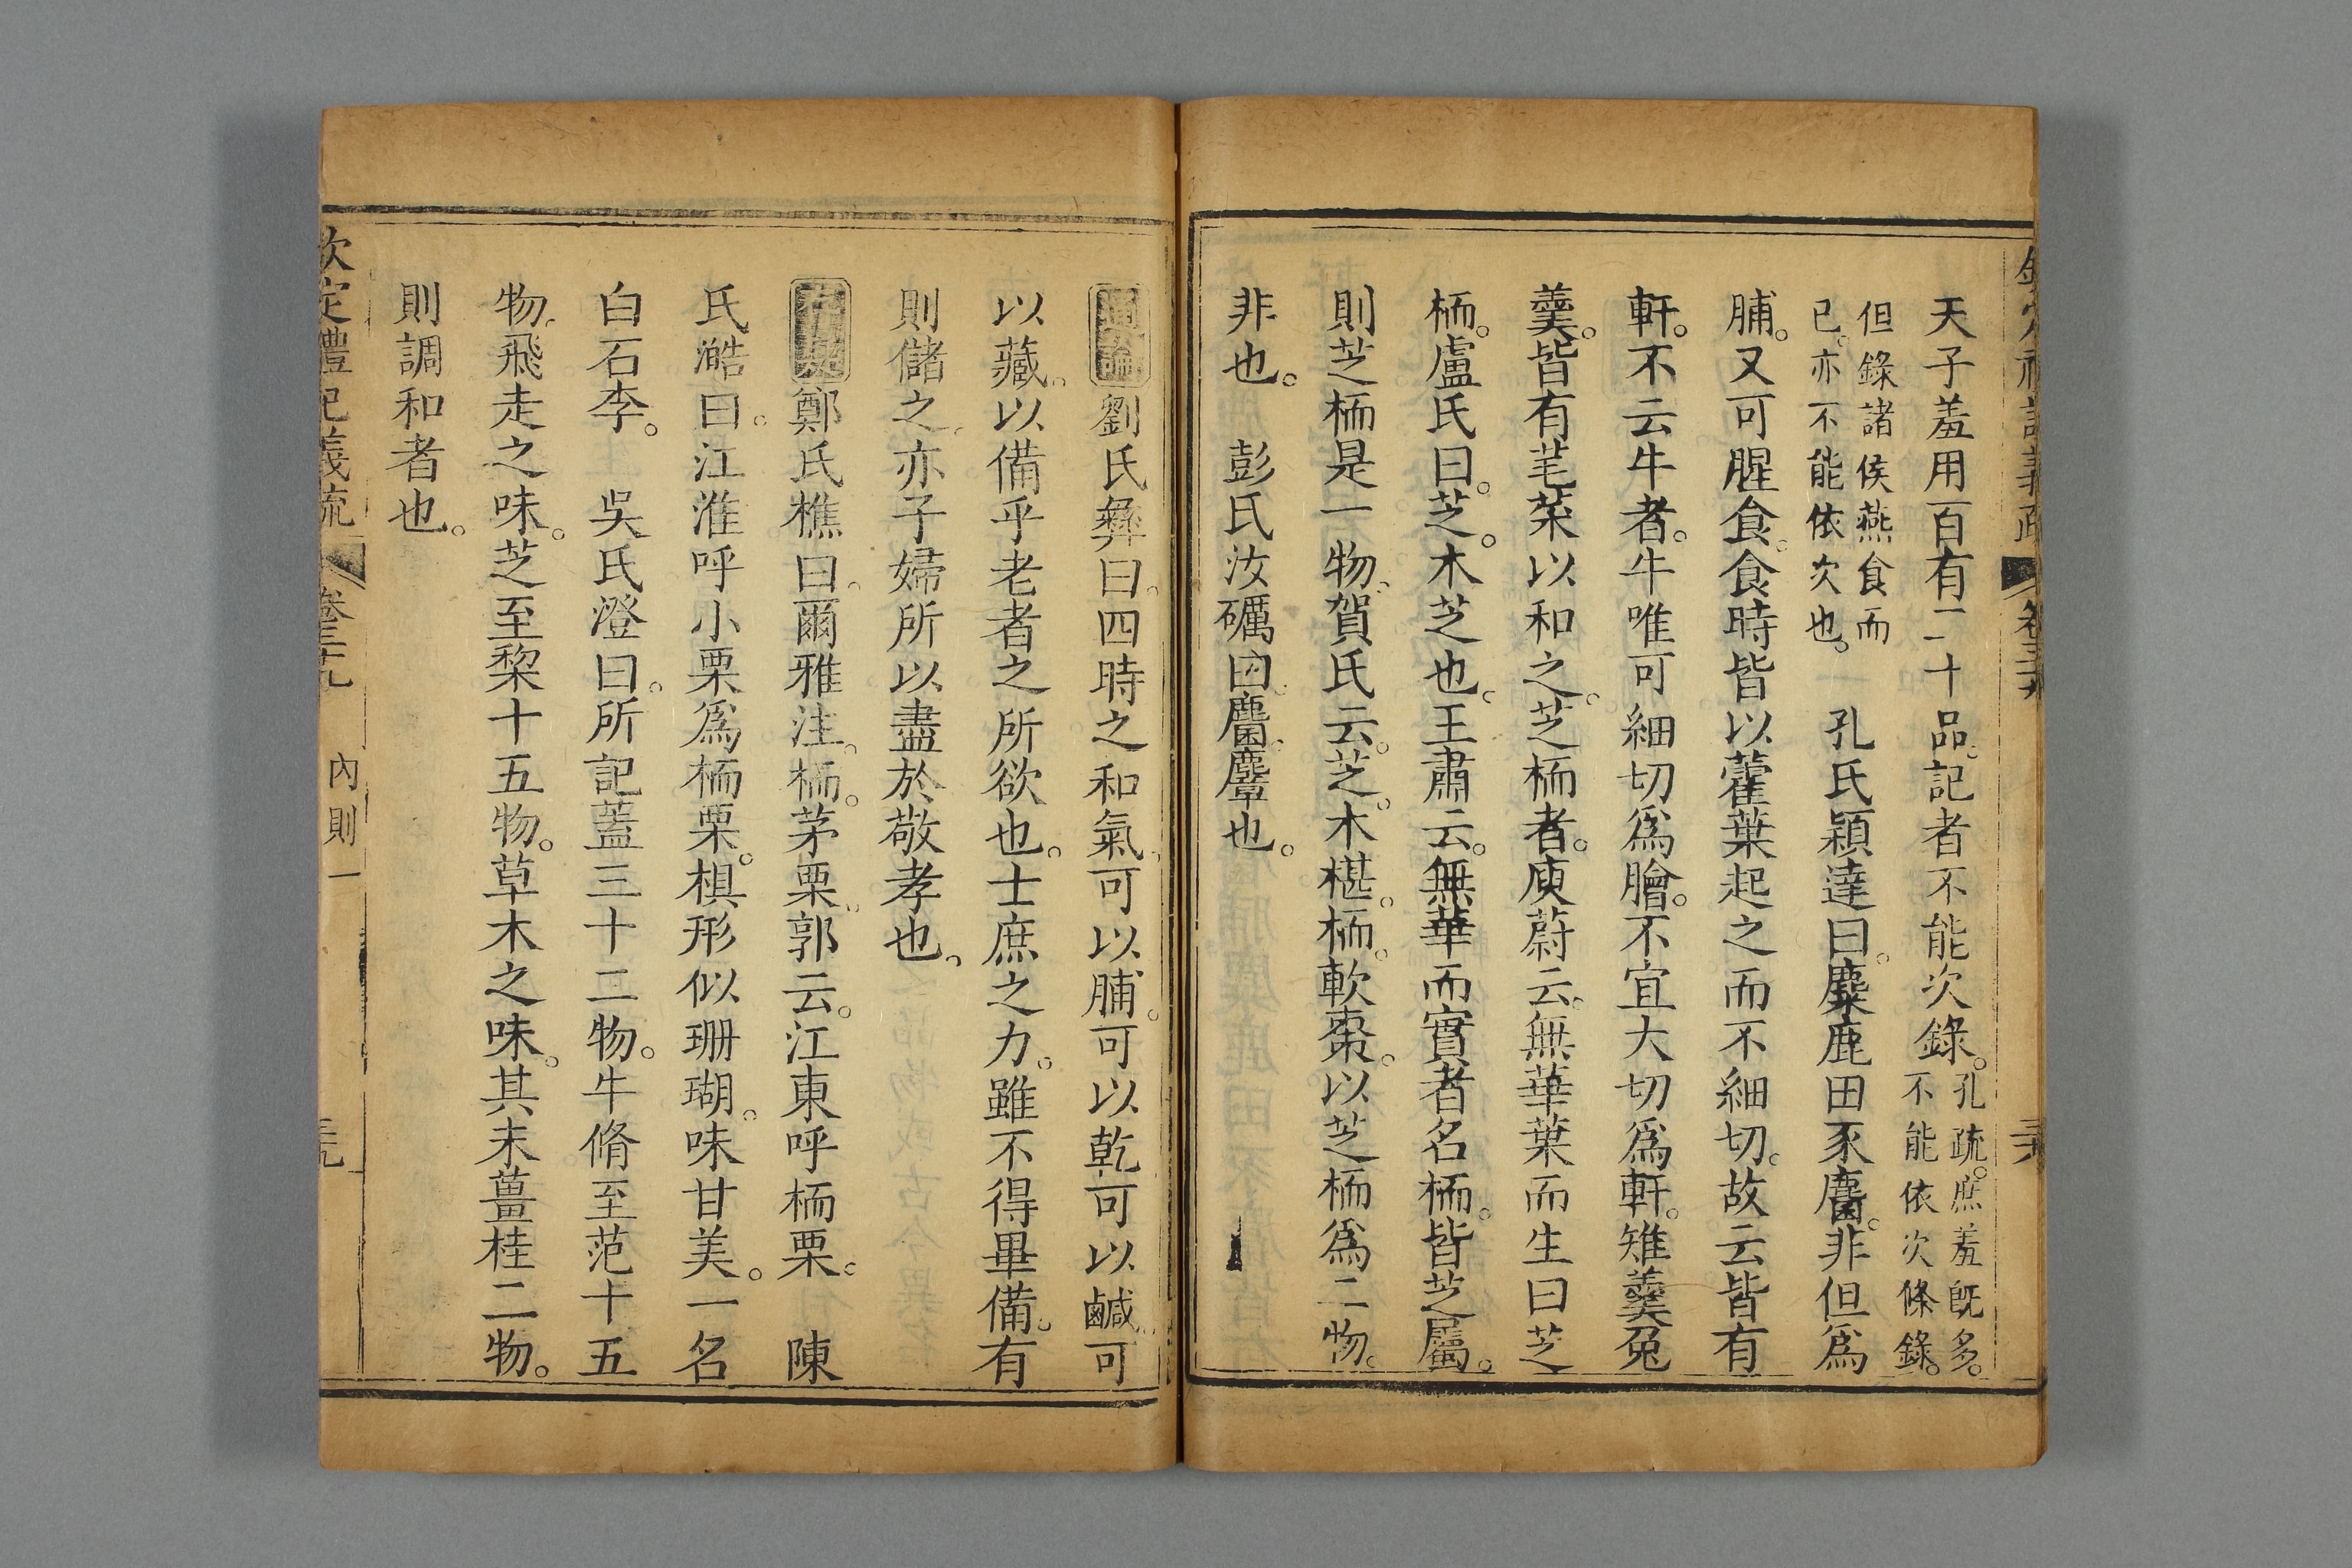 欽定禮記義疏 卷三十九
天子羞用百有二十品。記者不能次錄。孔疏。庶羞旣多。不能依次條錄。
但錄諸侯燕食而已。亦不能依次也。 孔氏穎達曰。麋鹿田豕麕。非但爲
脯。又可腥食。食時皆以藿葉起之而不細切。故云皆有
軒。不云牛者。牛唯可細切爲膾。不宜大切爲軒。雉羹兔
羹。皆有芼菜以和之。芝栭者。庾蔚云。無華葉而生曰芝
栭。盧氏曰。芝。木芝也。王肅云。無華而實者名栭。皆芝屬。
則芝栭是一物。賀氏云。芝。木椹。栭。軟棗。以芝栭爲二物。
非也。 彭氏汝礪曰。麕。麞也。
通論劉氏彝曰。四時之和氣。可以脯。可以乾。可以鹹。可
以藏。以備乎老者之所欲也。士庶之力。雖不得畢備。有
則儲之。亦子婦所以盡於敬孝也。
存疑鄭氏樵曰。爾雅注。栭。茅栗。郭云。江東呼栭栗。 陳
氏澔曰。江淮呼小栗爲栭栗。棋形似珊瑚。味甘美。一名
白石李。 吳氏澄曰。所記蓋三十二物。牛脩至范十五
物。飛走之味。芝至棃十五物。草木之味。其末薑桂二物。
則調和者也。
欽定禮記義疏 卷三十九 內則一 三九